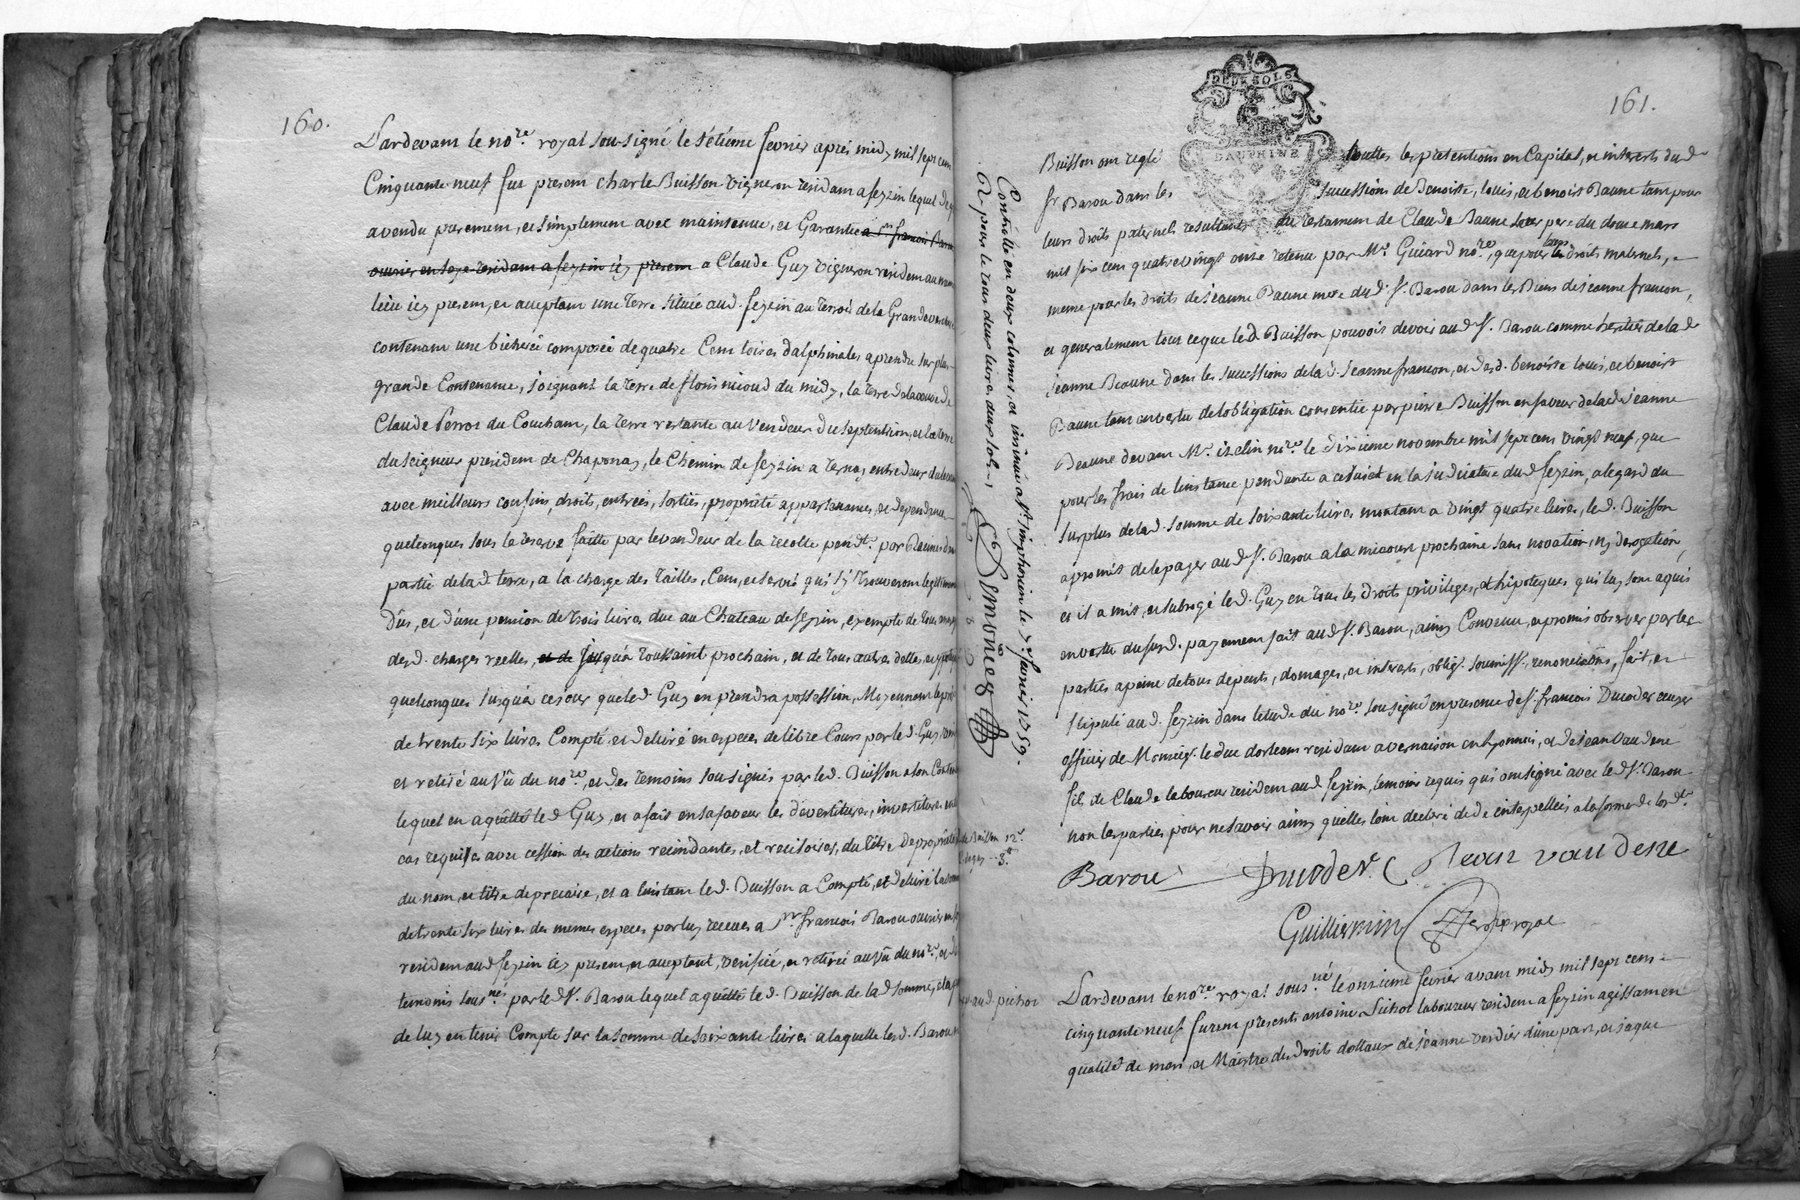 160.
Pardevant le no.re royal sousigné le setiéme fevrier aprés midy mil sept cent
Cinquante neuf fut present charle Buisson vigneron residant a feyzin lequel de
a vendu purement, et simplement avec maintenue, et Garantie a sr francois Barou
ouvrier en soye residant a feyzin icy present a Claude Guy vigneron resident au meme
lieu icy present, et acceptant une terre située aud. feyzin au terroir de la Grande
contenant une bicherée composée de quatre Cent toises dalphinales aprendre sur plus
grande Contenance, joignant la terre de floris nicoud du midy, la terre de la veuve de
Claude Perros du Couchant, la terre restante au vendeur du septentrion, et la terre
du seigneur president de Chaponay, le Chemin de feyzin a ternay entre deux du levant
avec meilleurs confins, droits, entrées, sorties, proprieté appartenances, et dependances
quelconques sous la reserve faitte par le vendeur de la recolte pend.te par
partie de lad. terre, a la charge des tailles, Cens, et servis qui s'y trouveront legitimement
dûs, et d'une pension de trois livres due au Chateau de feyzin, exempte de tous
desd. charges reelles, et de jusqu'a toussaint prochain, et de tous autres dettes, et
quelconques jusqu'a ce jour que led. Guy en prendra possession, Moyennant le prix
de trente six livres Compté, et delivré en especes de libre Cours par led. Guy,
et retiré au vû du no.re, et des temoins sousignés par led. Buisson a son Contentement
lequel en a quitté led. Guy, et a fait en sa faveur les devestitures, investitures en
cas requises avec cession des actions recindantes, et recisoires, du titre de proprieté
du nom, et titre de precaire, et a l'instant led. Buisson a Compté, et delivré la somme
de trente six livres des memes especes par luy receues a sr. francois Barou ouvrier en
resident aud. feyzin icy present, et acceptant, verifiée, et retirée au vû du no.re, et des
temoins sous.nés par led. sr. Barou lequel a quitté led. Buisson de lad. somme, et a
de luy en tenir Compte sur la somme de soixante livres a laquelle lesd. Barou, et
Controllé en deux colonnes, et insinué a st. simphorien le 7e. fevrier 1759.
R. pour le tout deux livres deux sols
Demonieg
DEUX SOLS
DAUPHINE
161.
Buisson ont reglé toutes les pretentions en Capital, et interets dud.
sr Barou dans les successions de Benoitte, louis, et benoit Baune tant pour
leurs droits paternels resultants du testament de Claude Baune leur pere du douze mars
mil six cent quatre vingt onze retenu par Me. Guiard no.re, que pour leurs droits maternels,
meme pour les droits de jeanne Baune mere dud. sr. Barou dans les Biens de jeanne francon,
et generalement tout ce que led. Buisson pouvoit devoir aud. sr. Barou comme heritier de lad.
jeanne Beaune dans les successions de lad. jeanne francon, et desd. benoitte louis, et benoit
Baune tant en vertu de l'obligation consentie par pierre Buisson en faveur de lad. jeanne
Beaune devant Me. izelin no.re le dixieme novembre mil sept cent vingt neuf, que
pour les frais de l'instance pendante a ce sujet en la judicature dud. feyzin, a l'egard du
surplus de lad. somme de soixante livres montant a vingt quatre livres, led. Buisson
a promis de le payer aud. sr. Barou a la micoust prochaine sans novation, ny derogation,
et il a mis, et subrogé led. Guy en tous les droits privileges, et hipoteques qui luy sont aquis
en vertu du susd. payement fait aud. sr. Barou, ainsy Convenu, et promis observer par les
parties a peine de tous depents, domages, et interets, oblig. soumiss., renonciations, fait, et
stipulé aud. feyzin dans l'etude du no.re sousigné en presence de sr. francois Ducoder
officier de Monseigr. le duc d'orleans residant a vernaison en lyonnois, et de jean vaudene
fils de Claude laboureur resident aud. feyzin, temoins requis qui ont signé avec led. sr. Barou
non les parties pour ne savoir ainsy quelles l'ont declaré de ce interpellées a la forme de l'ord.ce
du Buisson 12s
Barou Ducoder Jean vaudene
Guilliermin no.re royal
pichot
Pardevant le no.re royal sous.né le onzieme fevrier avant midy mil sept cens
cinquante neuf furent presents antoine Pichot laboureur resident a feyzin agissant en
qualité de mari, et Maistre des droits dottaux de jeanne verdier d'une part, et jaque